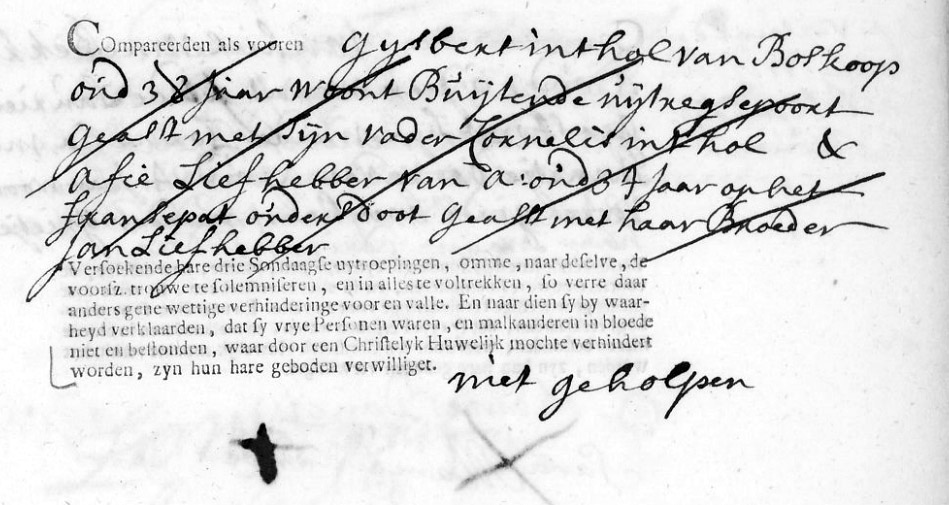 Compareerden als vooren Gijsbert int hol van Boskoop
oud 38 Jaar woont Buijten de uijtregse poort
geasst met sijn vader Cornelis int hol &
Afie Liefhebber van A: oud 34 Jaar op het
fransepat ouders doot geasst met haar Broeder
Jan Liefhebber
Versoekende hare drie Sondaagse uytroepingen, omme, naar deselve, de
voorsz. trouwe te solemniseren, en in alles te voltrekken, so verre daar
anders gene wettige verhinderinge voor en valle. En naar dien sy by waar-
heyd verklaarden, dat sy vrye Personen waren, en malkanderen in bloede
niet en bestonden, waar door een Christelyk Huwelijk mochte verhindert
worden, zyn hun hare geboden verwilliget.
niet geholpen